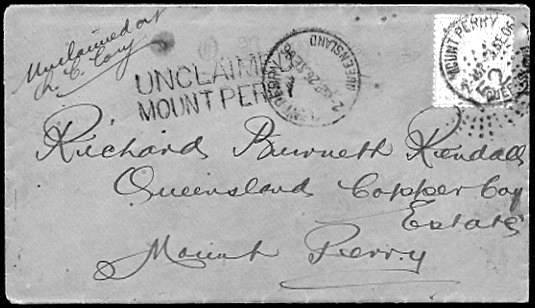 Unclaimed at
Q. C. Coy
UNCLAIMED
MOUNT PERRY
QUEENSLAND
MOUNT PERRY
Richard Burnett Kendall
Queensland Copper Coy
Estate
Mount Perry